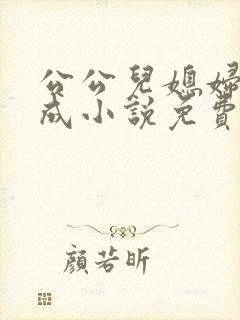 公公兒媳婦
成小說免費
顏若昕